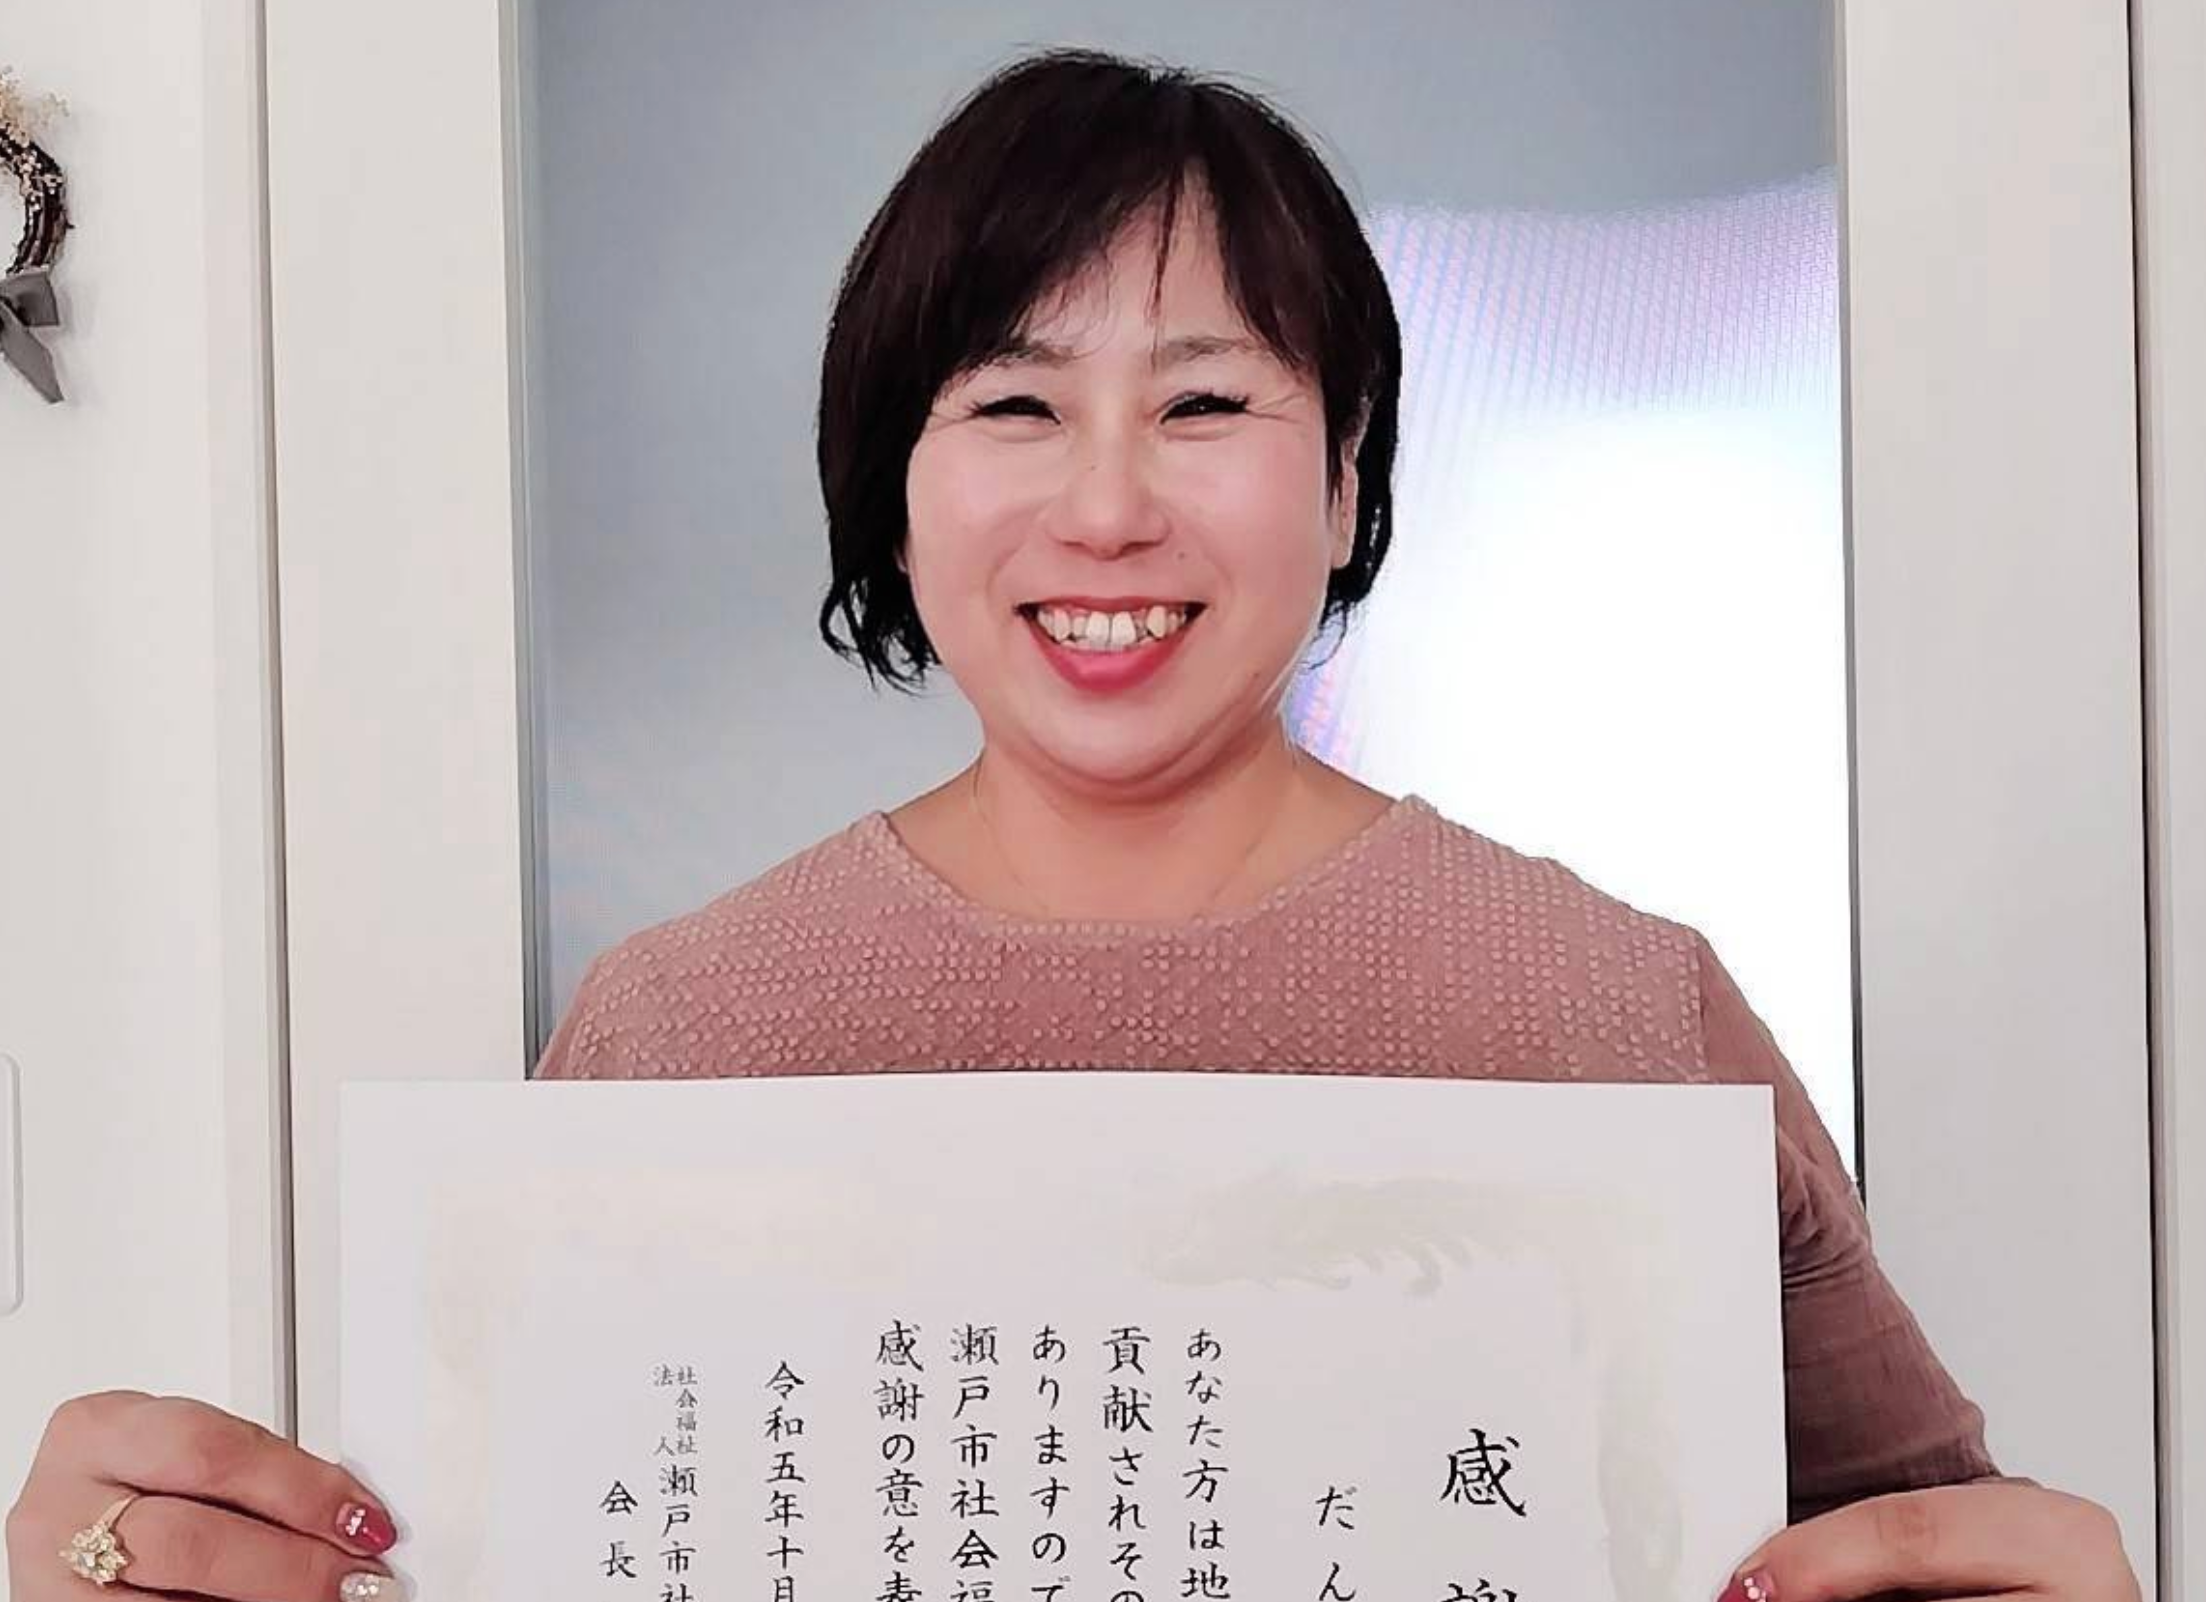 感
だん
あなた方は地
貢献されその
ありますので
瀬戸市社会福
感謝の意を表
令和五年十月
社会福祉
法人
瀬戸市社
会長